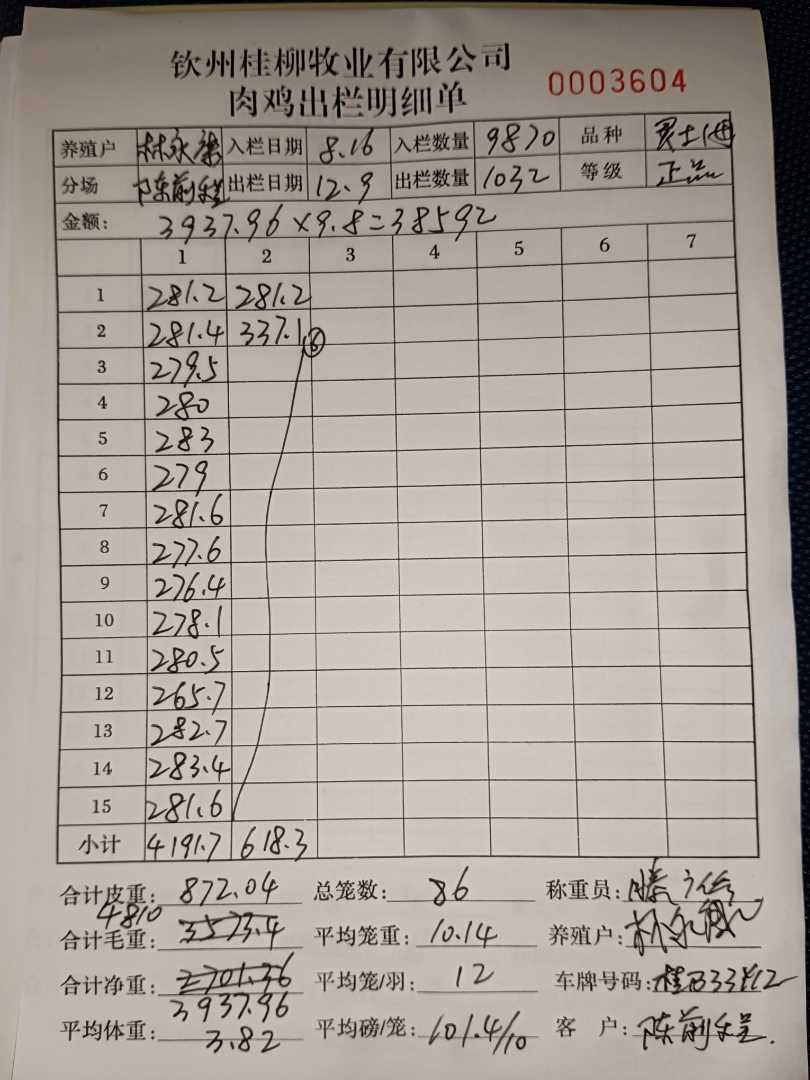 钦州桂柳牧业有限公司
0003604
肉鸡出栏明细单
养殖户 林永 入栏日期 8.16 入栏数量 9870 品种
分场 陈前程 出栏日期 12.9 出栏数量 1032 等级 正品
金额: 3937.96×9.8=38592
1 2 3 4 5 6 7
1 281.2 281.2
2 281.4 337.1 ⑥
3 279.5
4 280
5 283
6 279
7 281.6
8 277.6
9 276.4
10 278.1
11 280.5
12 265.7
13 282.7
14 283.4
15 281.6
小计 4191.7 618.3
合计皮重: 872.04 总笼数: 86 称重员:
4810
合计毛重: 3573.4 平均笼重: 10.14 养殖户: 林永
合计净重: 2701.36 平均笼/羽: 12 车牌号码:
3937.96
平均体重: 3.82 平均磅/笼: 101.4/10 客 户: 陈前程